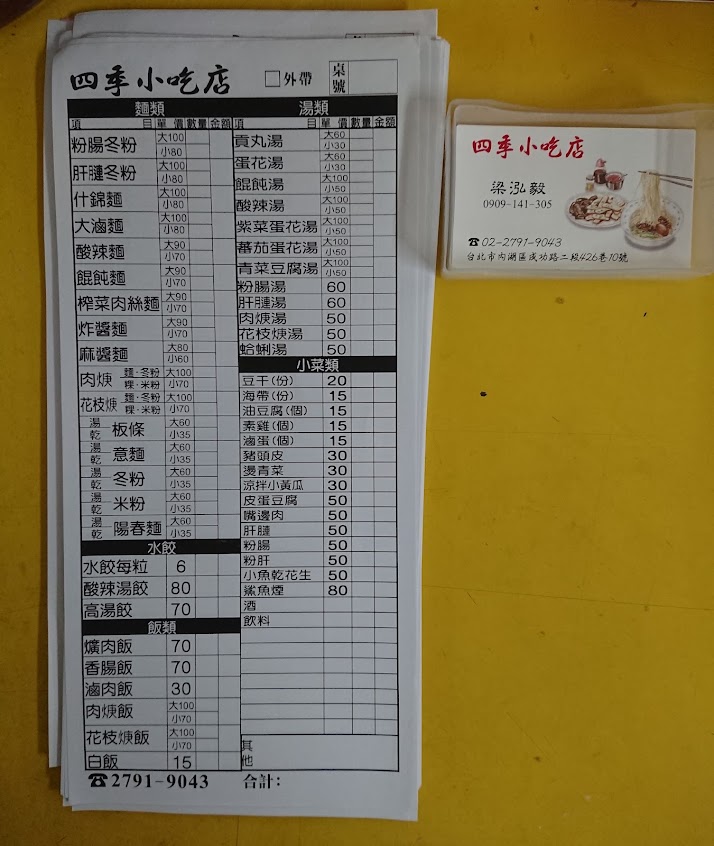 四季小吃店 □外帶 桌號
麵類
項目 單價 數量 金額
粉腸冬粉 大100 小80
肝膧冬粉 大100 小80
什錦麵 大100 小80
大滷麵 大100 小80
酸辣麵 大90 小70
餛飩麵 大90 小70
榨菜肉絲麵 大90 小70
炸醬麵 大90 小70
麻醬麵 大80 小60
肉焿 麵·冬粉 粿·米粉 大100 小70
花枝焿 麵·冬粉 粿·米粉 大100 小70
湯 乾 板條 大60 小35
湯 乾 意麵 大60 小35
湯 乾 冬粉 大60 小35
湯 乾 米粉 大60 小35
湯 乾 陽春麵 大60 小35
水餃
水餃每粒 6
酸辣湯餃 80
高湯餃 70
飯類
爌肉飯 70
香腸飯 70
滷肉飯 30
肉焿飯 大100 小70
花枝焿飯 大100 小70
白飯 15
湯類
項目 單價 數量 金額
貢丸湯 大60 小30
蛋花湯 大60 小30
餛飩湯 大100 小50
酸辣湯 大100 小50
紫菜蛋花湯 大100 小50
蕃茄蛋花湯 大100 小50
青菜豆腐湯 大100 小50
粉腸湯 60
肝膧湯 60
肉焿湯 50
花枝焿湯 50
蛤蜊湯 50
小菜類
豆干(份) 20
海帶(份) 15
油豆腐(個) 15
素雞(個) 15
滷蛋(個) 15
豬頭皮 30
燙青菜 30
涼拌小黃瓜 30
皮蛋豆腐 50
嘴邊肉 50
肝膧 50
粉腸 50
粉肝 50
小魚乾花生 50
鯊魚煙 80
酒
飲料
其他
☎2791-9043 合計：
四季小吃店
梁泓毅
0909-141-305
☎02-2791-9043
台北市內湖區成功路二段426巷10號